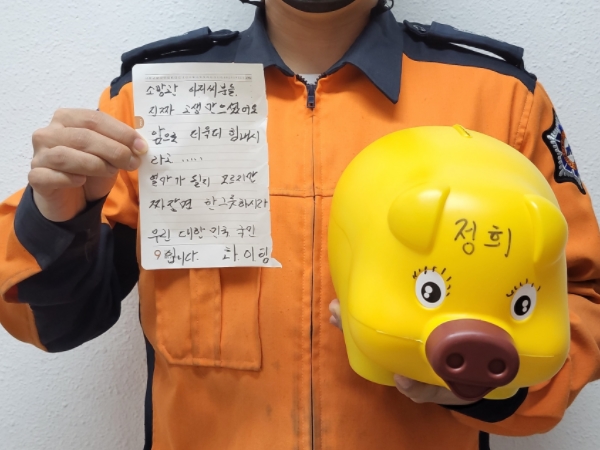 소방관 아저씨분들.
진짜 고생 많으셨어요
앞으로 더욱더 힘내시
라고 .....
얼마가 될지 모르지만
짜장면 한그릇하시라
우리 대한민국 국민
9합니다. 화이팅
정희